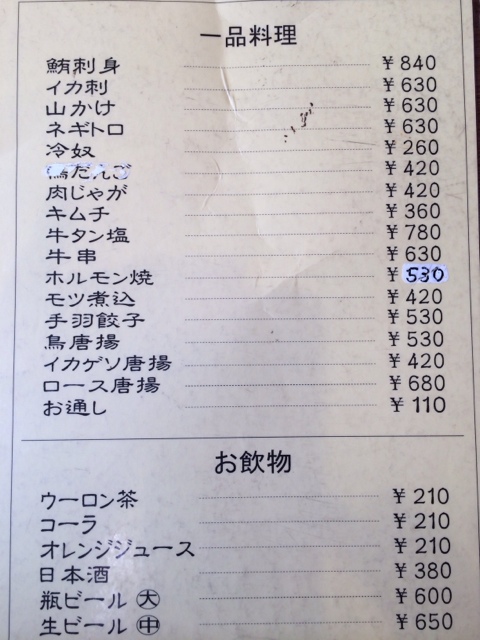 一品料理
鮪刺身 ¥840
イカ刺 ¥630
山かけ ¥630
ネギトロ ¥630
冷奴 ¥260
鳥だんご ¥420
肉じゃが ¥420
キムチ ¥360
牛タン塩 ¥780
牛串 ¥630
ホルモン焼 ¥530
モツ煮込 ¥420
手羽餃子 ¥530
鳥唐揚 ¥530
イカゲソ唐揚 ¥420
ロース唐揚 ¥680
お通し ¥110
お飲物
ウーロン茶 ¥210
コーラ ¥210
オレンジジュース ¥210
日本酒 ¥380
瓶ビール 大 ¥600
生ビール 中 ¥650